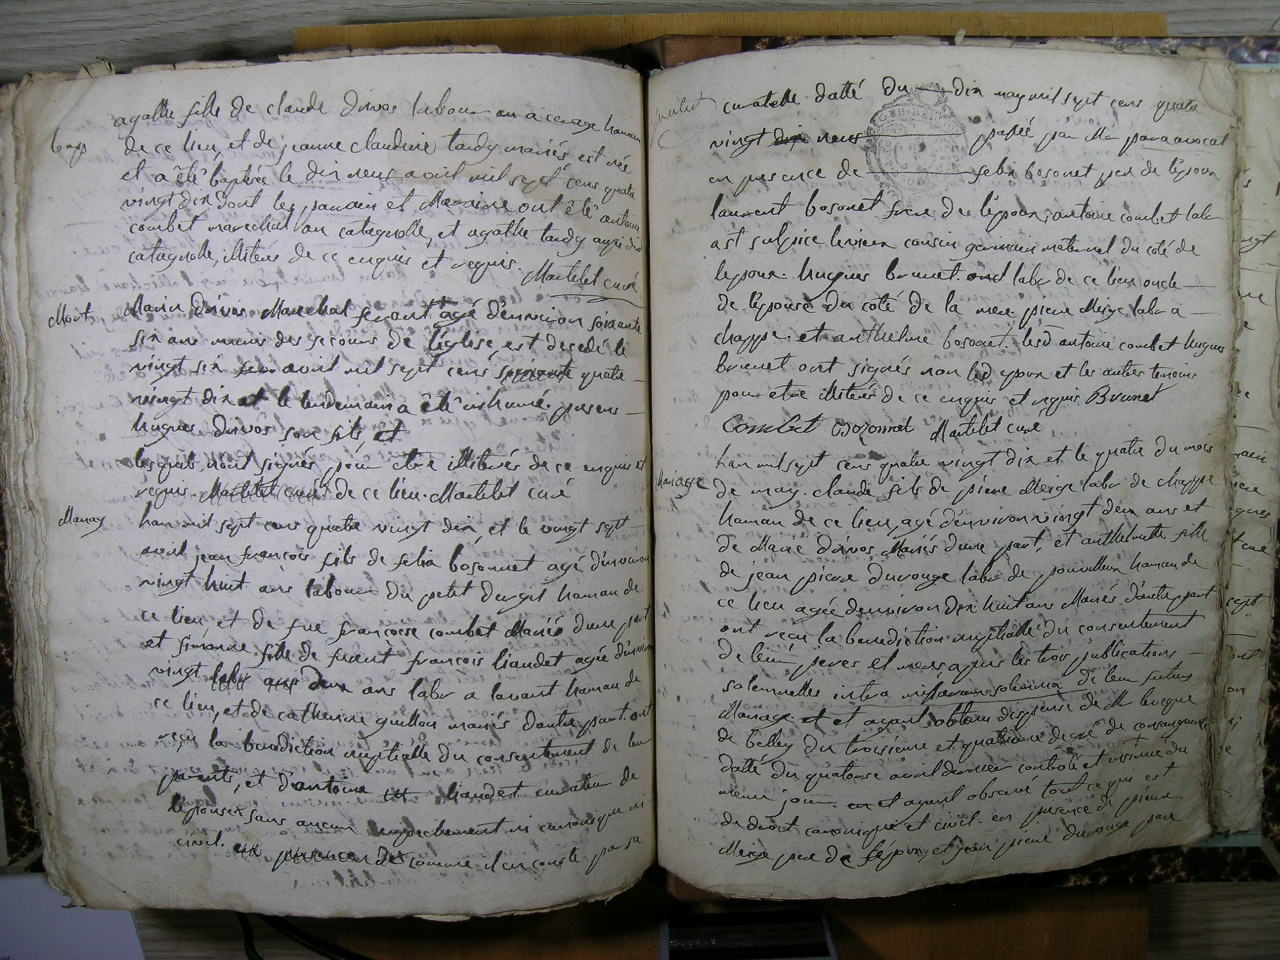 agathe fille de claude drivos labour au a cerage hameau
bap de ce lieu, et de jeanne claudine tardy mariés est née
et a êtê baptisée le dix neuf avril mil sept cens quatre
vingt dix dont les parain et Maraine ont êtê antoine
combet marechal au catagnolle, et agathe tardy
catagnolle, illiterés de ce enquis et requis. Martelet curé
Mort Marin drivos Marechal feront âgé d'environ soixante
six ans muni des secours de l'église est decedé le
vingt six avril mil sept cens quatre
vingt dix et le lendemain a êtê inhumé, presens
hugues drivos son fils et
lesquels n'ont signés pour être illiterés de ce enquis et
requis. Martelet curé de ce lieu. Martelet curé
Mariag lan mil sept cens quatre vingt dix, et le vingt sept
avril jean françois fils de felix bosonnet agé d'environ
vingt huit ans labour du petit hameau de
ce lieu et de fue françoise combet Mariés d'une part
et simonne fille de françois liaudet agée d'environ
vingt deux ans labr a lavant hameau de
ce lieu, et de catherine guillon mariés d'autre part. ont
reçu la benediction nuptialle du consentement de leur
parents, et d'antoine liaudet curateur de
lepouse sans aucun empechement ni canonique ni
civil. en presence de comme il en conste par sa
curatelle datté du dix may mil sept cens quatre
vingt neuf passée par Me avocat
en presence de felix bosonet pere de l'epoux
laurent bosonet frere de l'epoux, antoine combet labr
a st sulpice le vieux cousin germain maternel du coté de
lepoux. hugues brunet labr de ce lieu oncle
de l'epouse du coté de la mere pierre Merge labr a
chappe. et anthelme bosonet. lesd antoine combet hugues
brunet ont signés non led epoux et les autres temoins
pour etre illiterés de ce enquis et requis Brunet
Combet Bozonnet Martelet curé
lan mil sept cens quatre vingt dix et le quatre du mois
Mariage de may. claude fils de pierre Merge labr de chappe
hamau de ce lieu, agé d'environ vingt deux ans et
de Marie drivos Mariés d'une part et anthelmette fille
de jean pierre durouge labr de hamau de
ce lieu agée d'environ dix huit ans Mariés d'autre part
ont reçu la benediction nuptialle du consentement
de leurs peres et meres apres les trois publications
solemnelles intra missarum solemnia de leur futur
Mariage et ayant obtenu dispense de M leveque
de belley du troisieme et quatrieme degré de consanguinité
datté du quatorze avril dernier controlé et insinué du
même jour. et ayant observé tout ce qui est
de droit canonique et civil. en presence de pierre
Merge pere de l'epoux, et jean pierre durouge pere